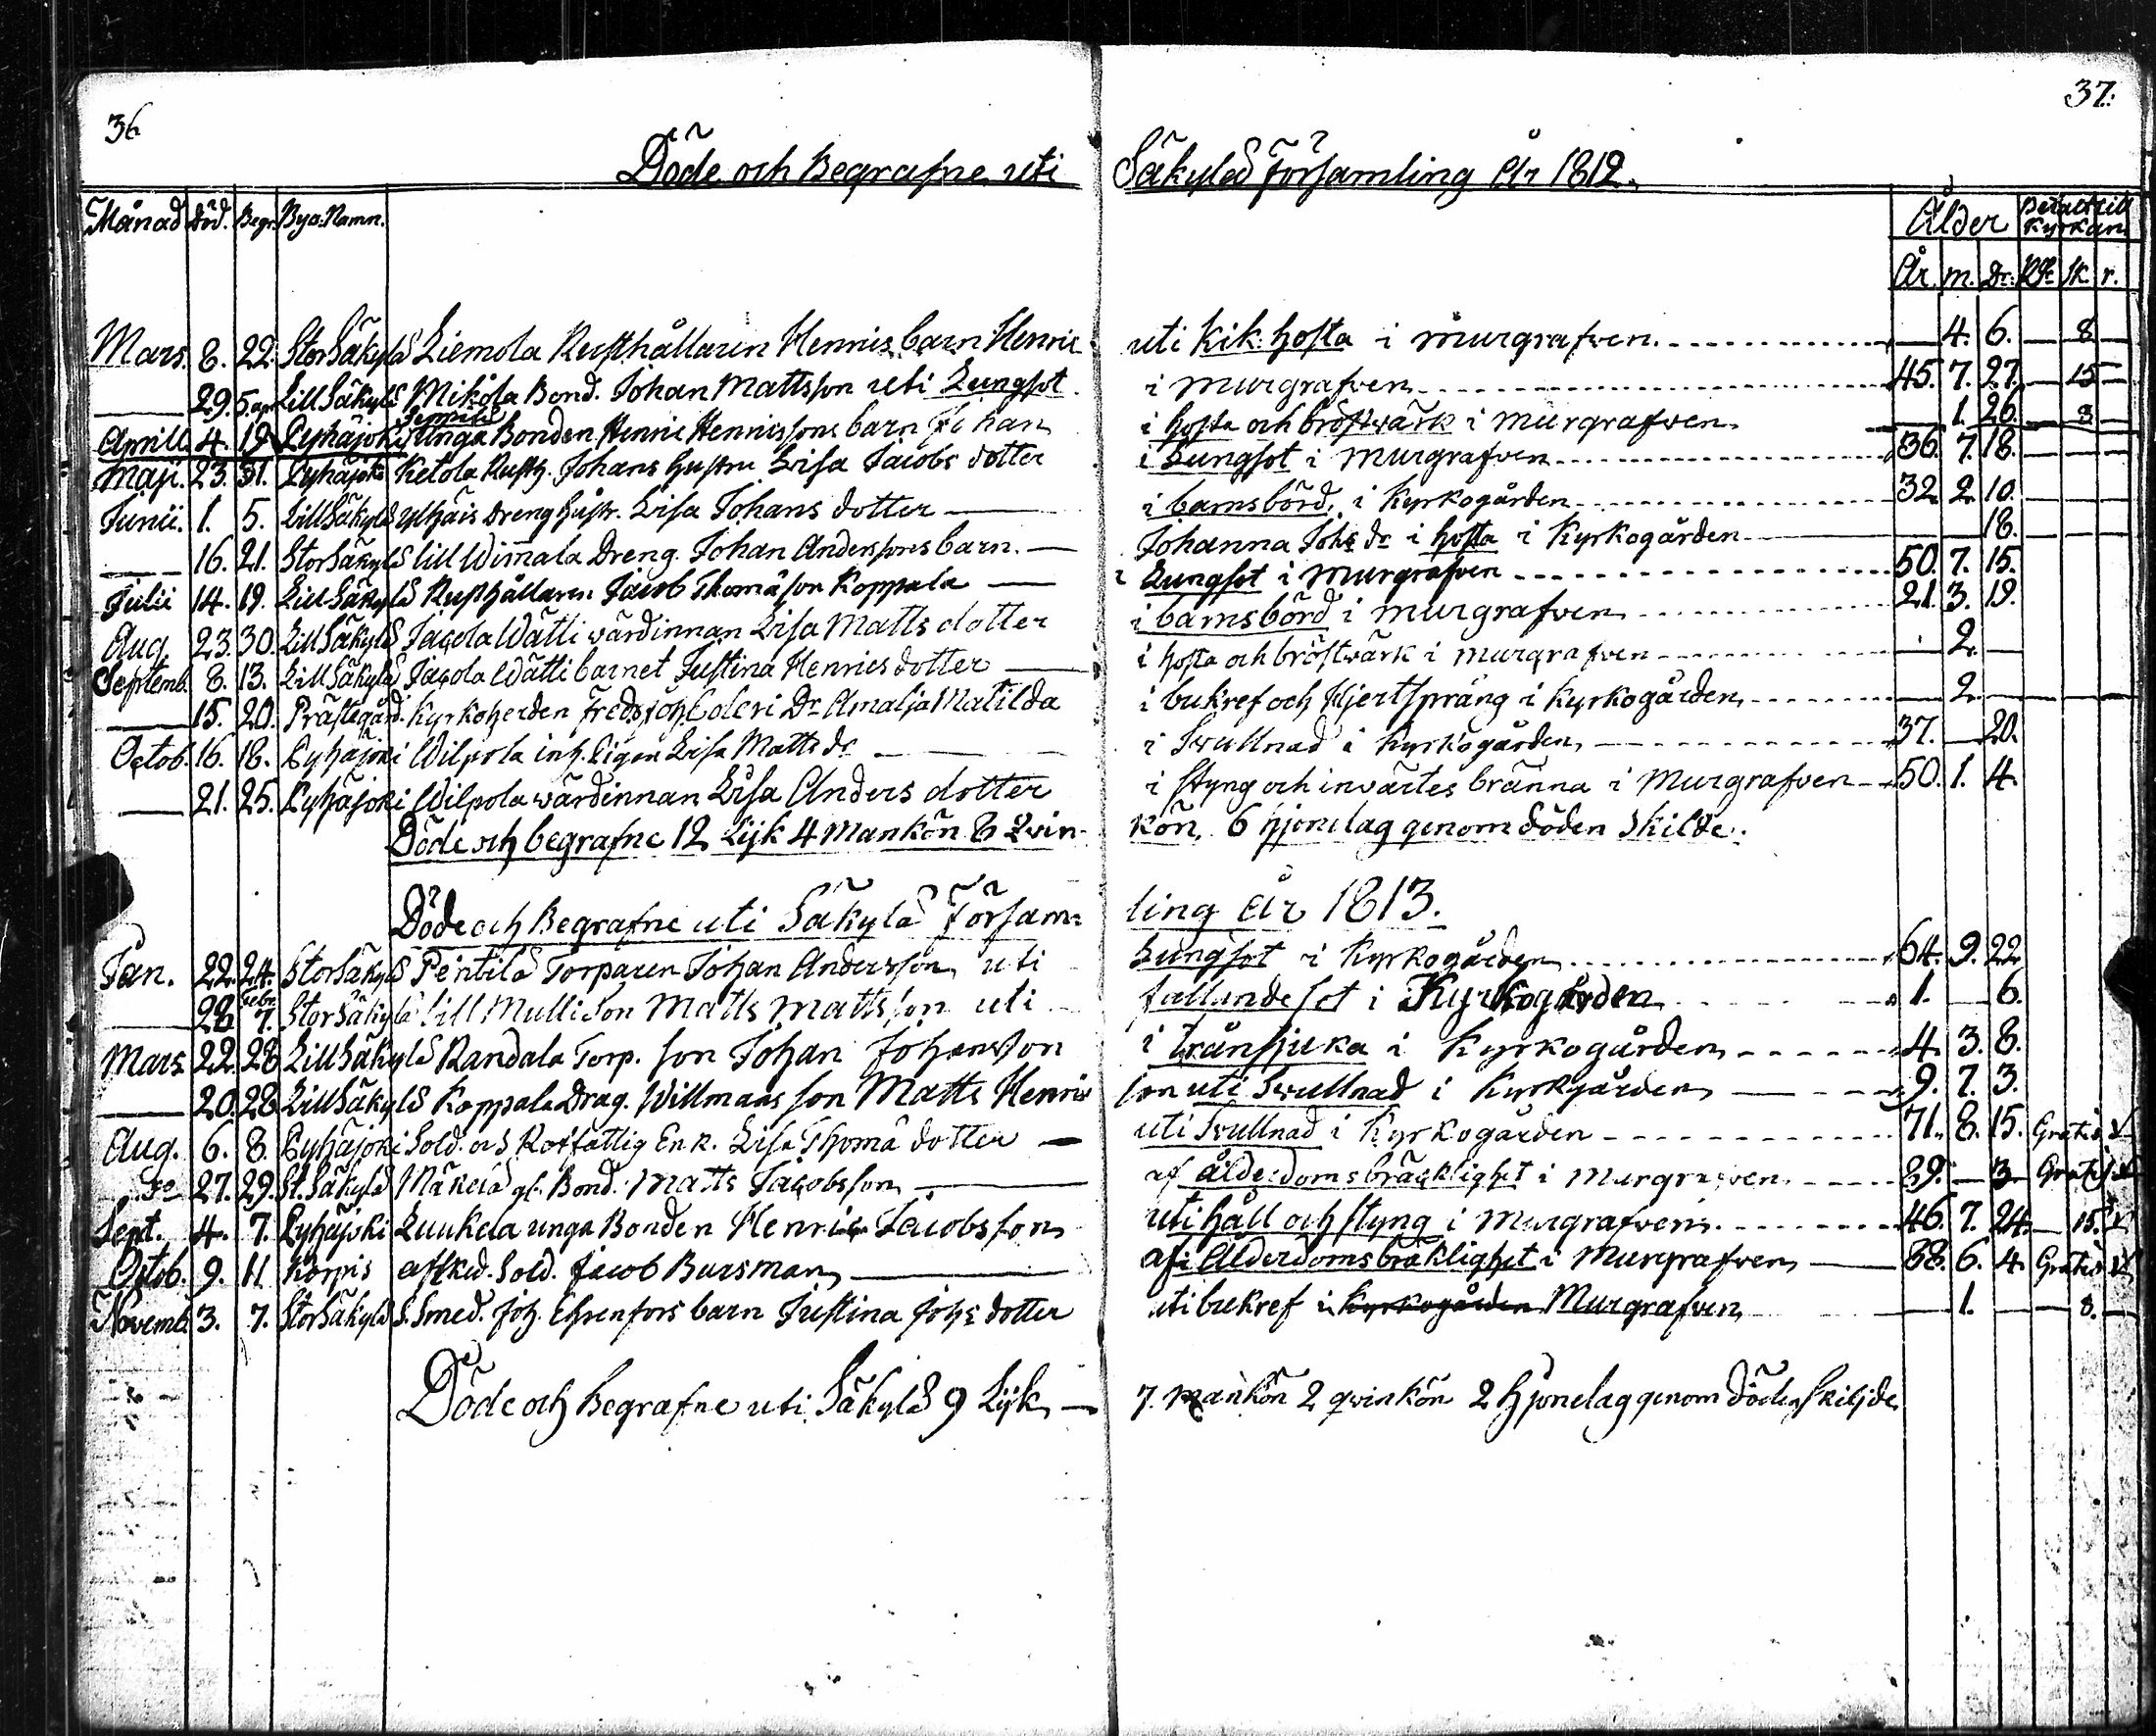 36. 37.
Döde och Begrafne uti Säkylä Församling År 1812.
Månad Död. Begr. Bya: Namn. Ålder Betalt till Kyrkan
År m. Dr. Rdr sk. r.
Mars. 8. 22. StorSäkylä Liemola Rusthållaren Henrics barn Henric uti Kik hosta i murgrafven. — 4. 6. — 8 —
— 29. 5. apr LillSäkylä Mikola Bond. Johan Mattsson uti Lungsot i murgrafven 45. 7. 27. — 15 —
Aprill. 4. 19 Pyhäjoki Unga Bonden Henric Henricssons barn Johan i hosta och bröstwärk i murgrafven — 1. 26. — 8 —
Maji. 23. 31. Pyhäjoki Ketola Rusth. Johans hustru Lisa Jacobs dotter i Lungsot i murgrafven 36. 7. 18. — — —
Junii. 1. 5. LillSäkylä Ylhäis Dreng hustr. Lisa Johans dotter — i barnsbörd, i Kyrkogården 32. 2. 10. — — —
— 16. 21. StorSäkylä lill Wimala Dreng. Johan Anderssons barn. — Johanna Johs dr i hosta i Kyrkogården — — 18. — — —
Julii 14. 19. LillSäkylä Rusthållaren Jacob Thomasson Koppala — i Lungsot i murgrafven 50. 7. 15.
Aug. 23. 30. LillSäkylä Jacola Wätti wärdinnan Lisa Matts dotter i barnsbörd i murgrafven 21. 3. 19.
Septemb. 8. 13. LillSäkylä Jacola Wätti barnet Justina Henrics dotter — i hosta och bröstwärk i murgrafven — 2. —
— 15. 20. Prästegård. Kyrkoherden Fred. Joh. Coleri Dr Amalja Matilda i bukref och Hjertsprång i Kyrkogården — 2. —
Octob. 16. 18. Pyhäjoki Wilpola inh. Pigan Lisa Matts dr — i Swullnad i Kyrkogården 37. — 20.
— 21. 25. Pyhäjoki Wilpola wärdinnan Lisa Anders dotter i styng och invärtes bränna i Murgrafven 50. 1. 4.
Döde och begrafne 12 Lijk 4 Mankön 8 Qwinkön. 6 hjonelag genom döden skilde.
Döde och Begrafne uti Säkylä Församling År 1813.
Jan. 22. 24. StorSäkylä Pentilä Torparen Johan Andersson uti Lungsot i Kyrkogården 64. 9. 22.
— 28. Febr. 7. StorSäkylä lill Mulli Son Matts Mattsson uti fallandesot i Kyrkogården 1. — 6.
Mars 22. 28 LillSäkylä Randala Torp. Son Johan Johansson i Trånsjuka i Kyrkogården 4. 3. 8.
— 20. 28 LillSäkylä Koppala Drag. Willmans son Matts Henricson uti Swullnad i Kyrkgården 9. 7. 3.
Aug. 6. 8. Pyhäjoki Sold. och Rotfattig Enk. Lisa Thoma dotter — uti Swullnad i Kyrkogården 71. 8. 15. Gratis
Do 27. 29. St. Säkylä Mäkelä gl. Bond. Matts Jacobsson — af ålderdomsbräcklighet i Murgrafven 89. — 3. Gratis
Sept. 4. 7. Pyhäjoki Luukela unga Bonden Henric Jacobsson uti håll och styng i murgrafven. 46. 7. 24. — 15.
Octob. 9. 11 Korpis afsked. Sold. Jacob Bursman — af Ålderdomsbräklighet i Murgrafven — 88. 6. 4. Gratis
Novemb. 3. 7. StorSäkylä S. Smed. Joh. Ehrenfors barn Justina Johs dotter uti bukref i Kyrkogården Murgrafven — 1. — — 8. —
Döde och Begrafne uti Säkylä 9 Lijk — 7. mankön 2 qwinkön 2 Hjonelag genom Döden Skiljde